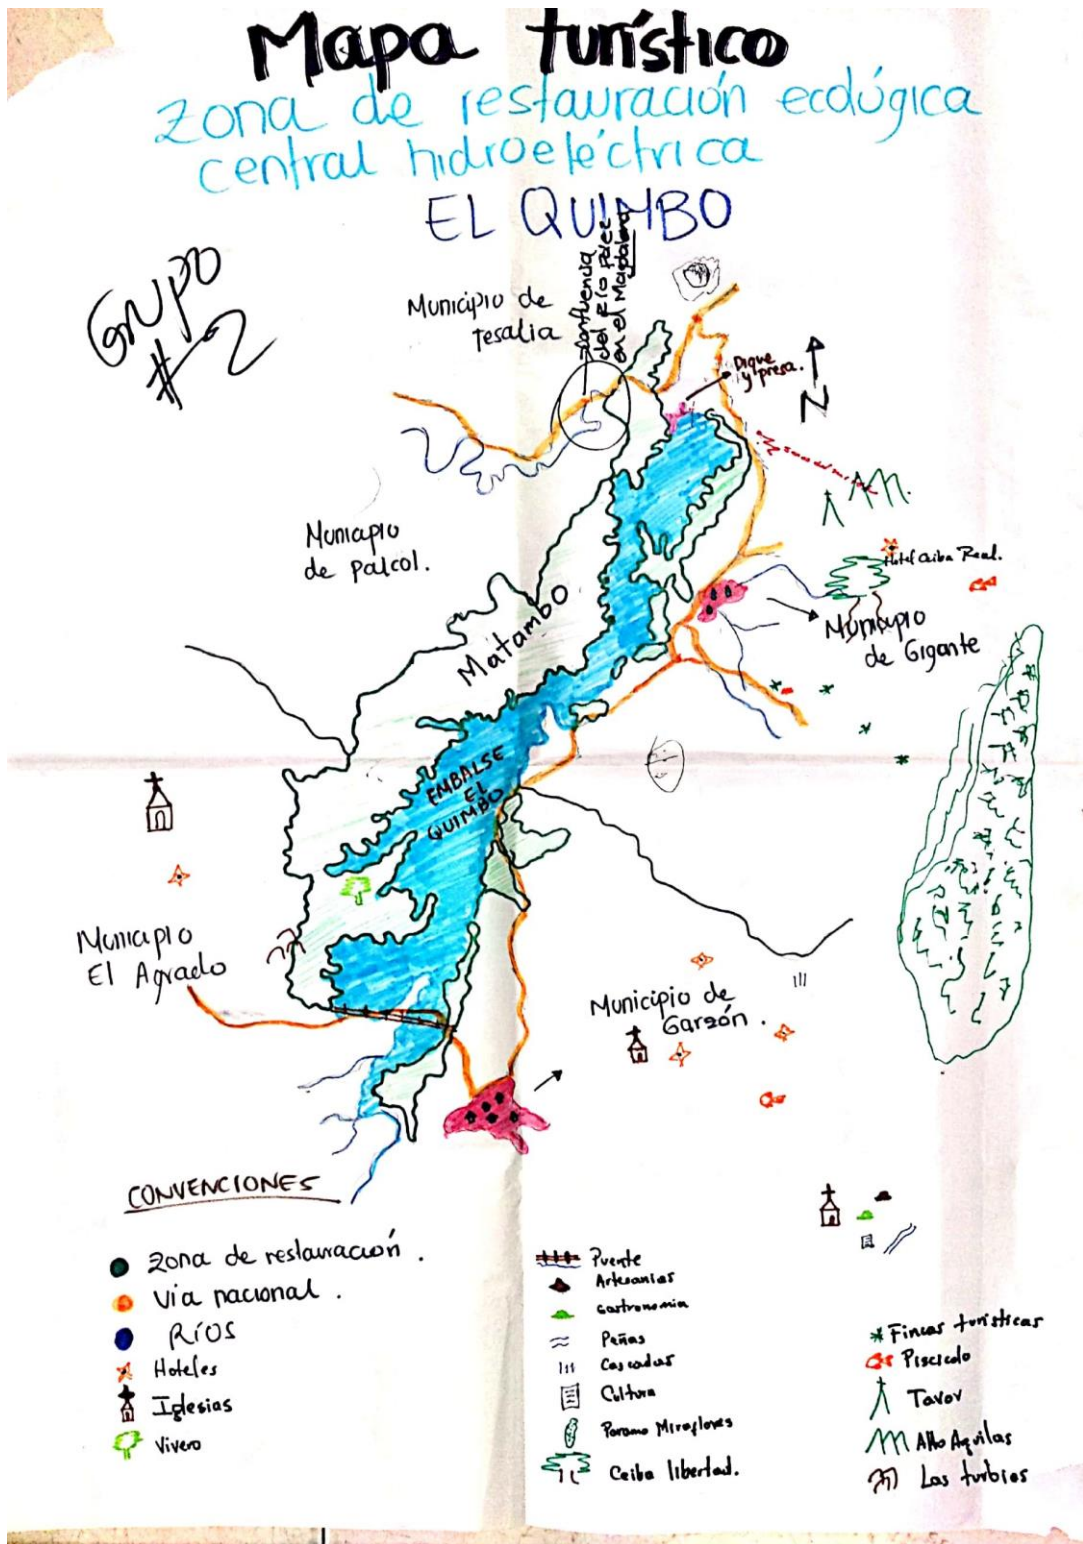 Mapa turístico
Zona de restauración ecológica
central hidroeléctrica
EL QUIMBO
Grupo
#2
Municipio de
Tesalia
Confluencia
del Río Páez
en el Magdalena
Dique
y presa.
N
Municipio
de paicol.
Hotel Ceiba Real.
Matambo
Municipio
de Gigante
EMBALSE
EL
QUIMBO
Municipio
El Agrado
Municipio de
Garzón.
CONVENCIONES
Zona de restauración.
Vía nacional.
RÍOS
Hoteles
Iglesias
Vivero
Puente
Artesanias
Gastronomia
Peñas
Cascadas
Cultura
Paramo Miraflores
Ceiba libertad.
Fincas turísticas
Piscicola
Tavor
Alto Aguilas
Las turbias